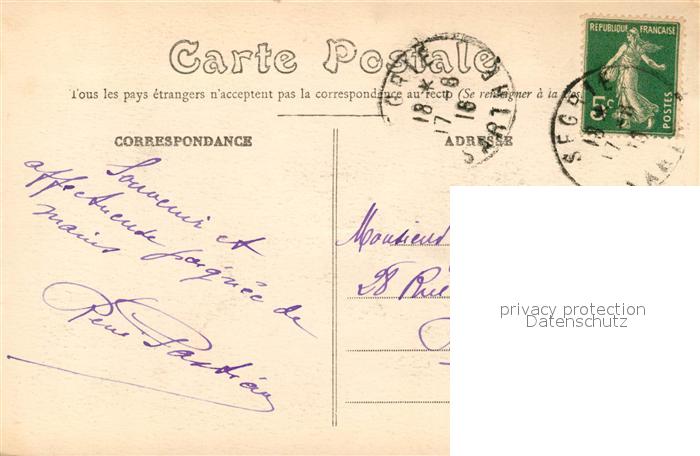 Carte Postale
Tous les pays étrangers n'acceptent pas la correspondance au recto (Se renseigner à la
CORRESPONDANCE
ADRESSE
REPUBLIQUE FRANÇAISE
5c
POSTES
SEGRIE
18 * 17-8 16
SARTHE
Souvenir et
affectueuse poignée de
mains
René
Monsieur
28 Rue
privacy protection
Datenschutz